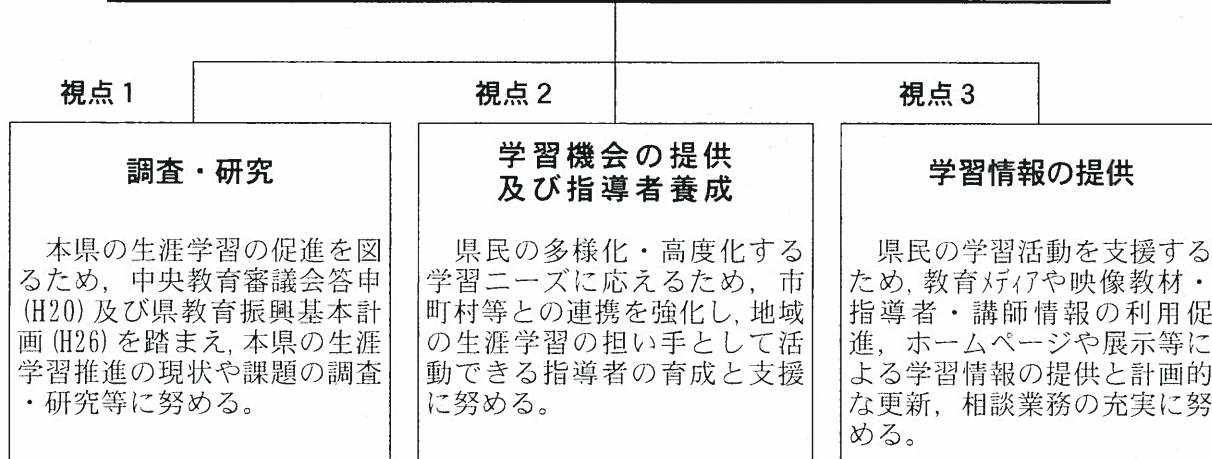 視点1
調査・研究
本県の生涯学習の促進を図
るため，中央教育審議会答申
(H20)及び県教育振興基本計
画(H26)を踏まえ,本県の生涯
学習推進の現状や課題の調査
・研究等に努める。
視点2
学習機会の提供
及び指導者養成
県民の多様化・高度化する
学習ニーズに応えるため，市
町村等との連携を強化し,地域
の生涯学習の担い手として活
動できる指導者の育成と支援
に努める。
視点3
学習情報の提供
県民の学習活動を支援する
ため,教育ﾒﾃﾞｨｱや映像教材・
指導者・講師情報の利用促
進，ホームページや展示等に
よる学習情報の提供と計画的
な更新，相談業務の充実に努
める。